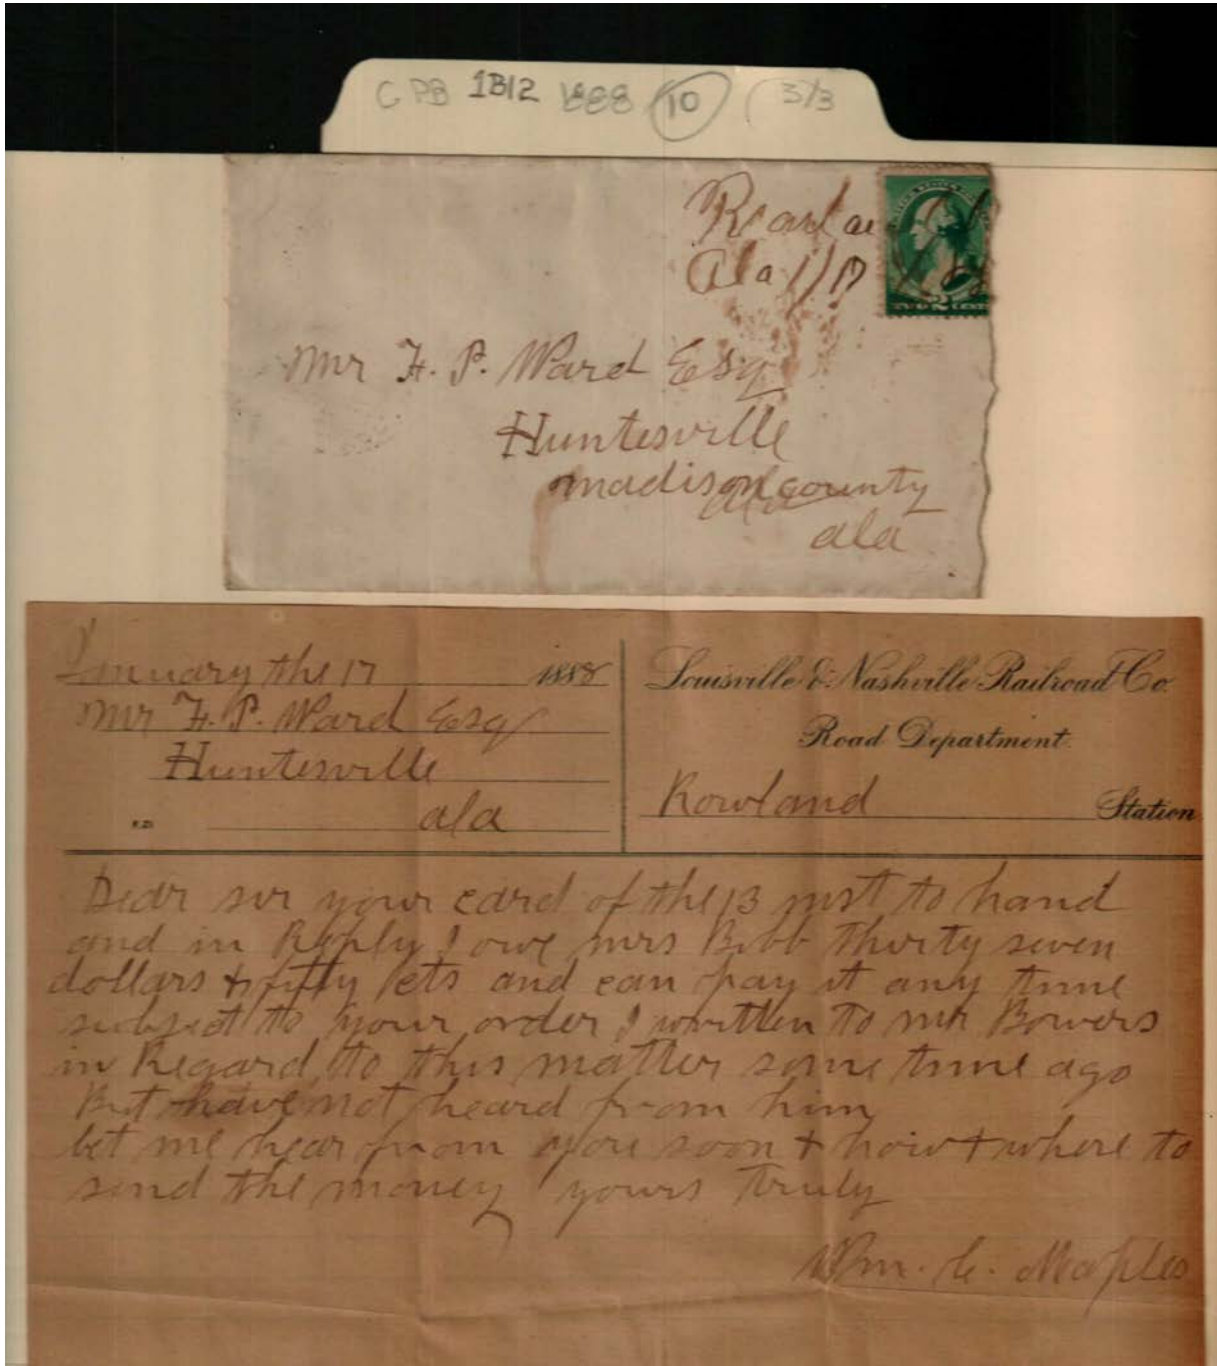 C PB 1B12 1888 10 3/3
Ala 1/17
2
Mr H. P. Ward Esq
Huntesville
madison county
ala
January the 17 1888
Mr H. P. Ward Esq
Huntesville
ala
Louisville & Nashville Railroad Co.
Road Department.
Rowland Station
Dear sir your card of the 13 inst to hand
and in Reply I owe mrs Bibb thirty seven
dollars & fifty cts and can pay it any time
subject to your order I written to mr Bowers
in Regard to this matter some time ago
But have not heard from him
let me hear from you soon & how & where to
send the money yours truly
Wm. C. Maples